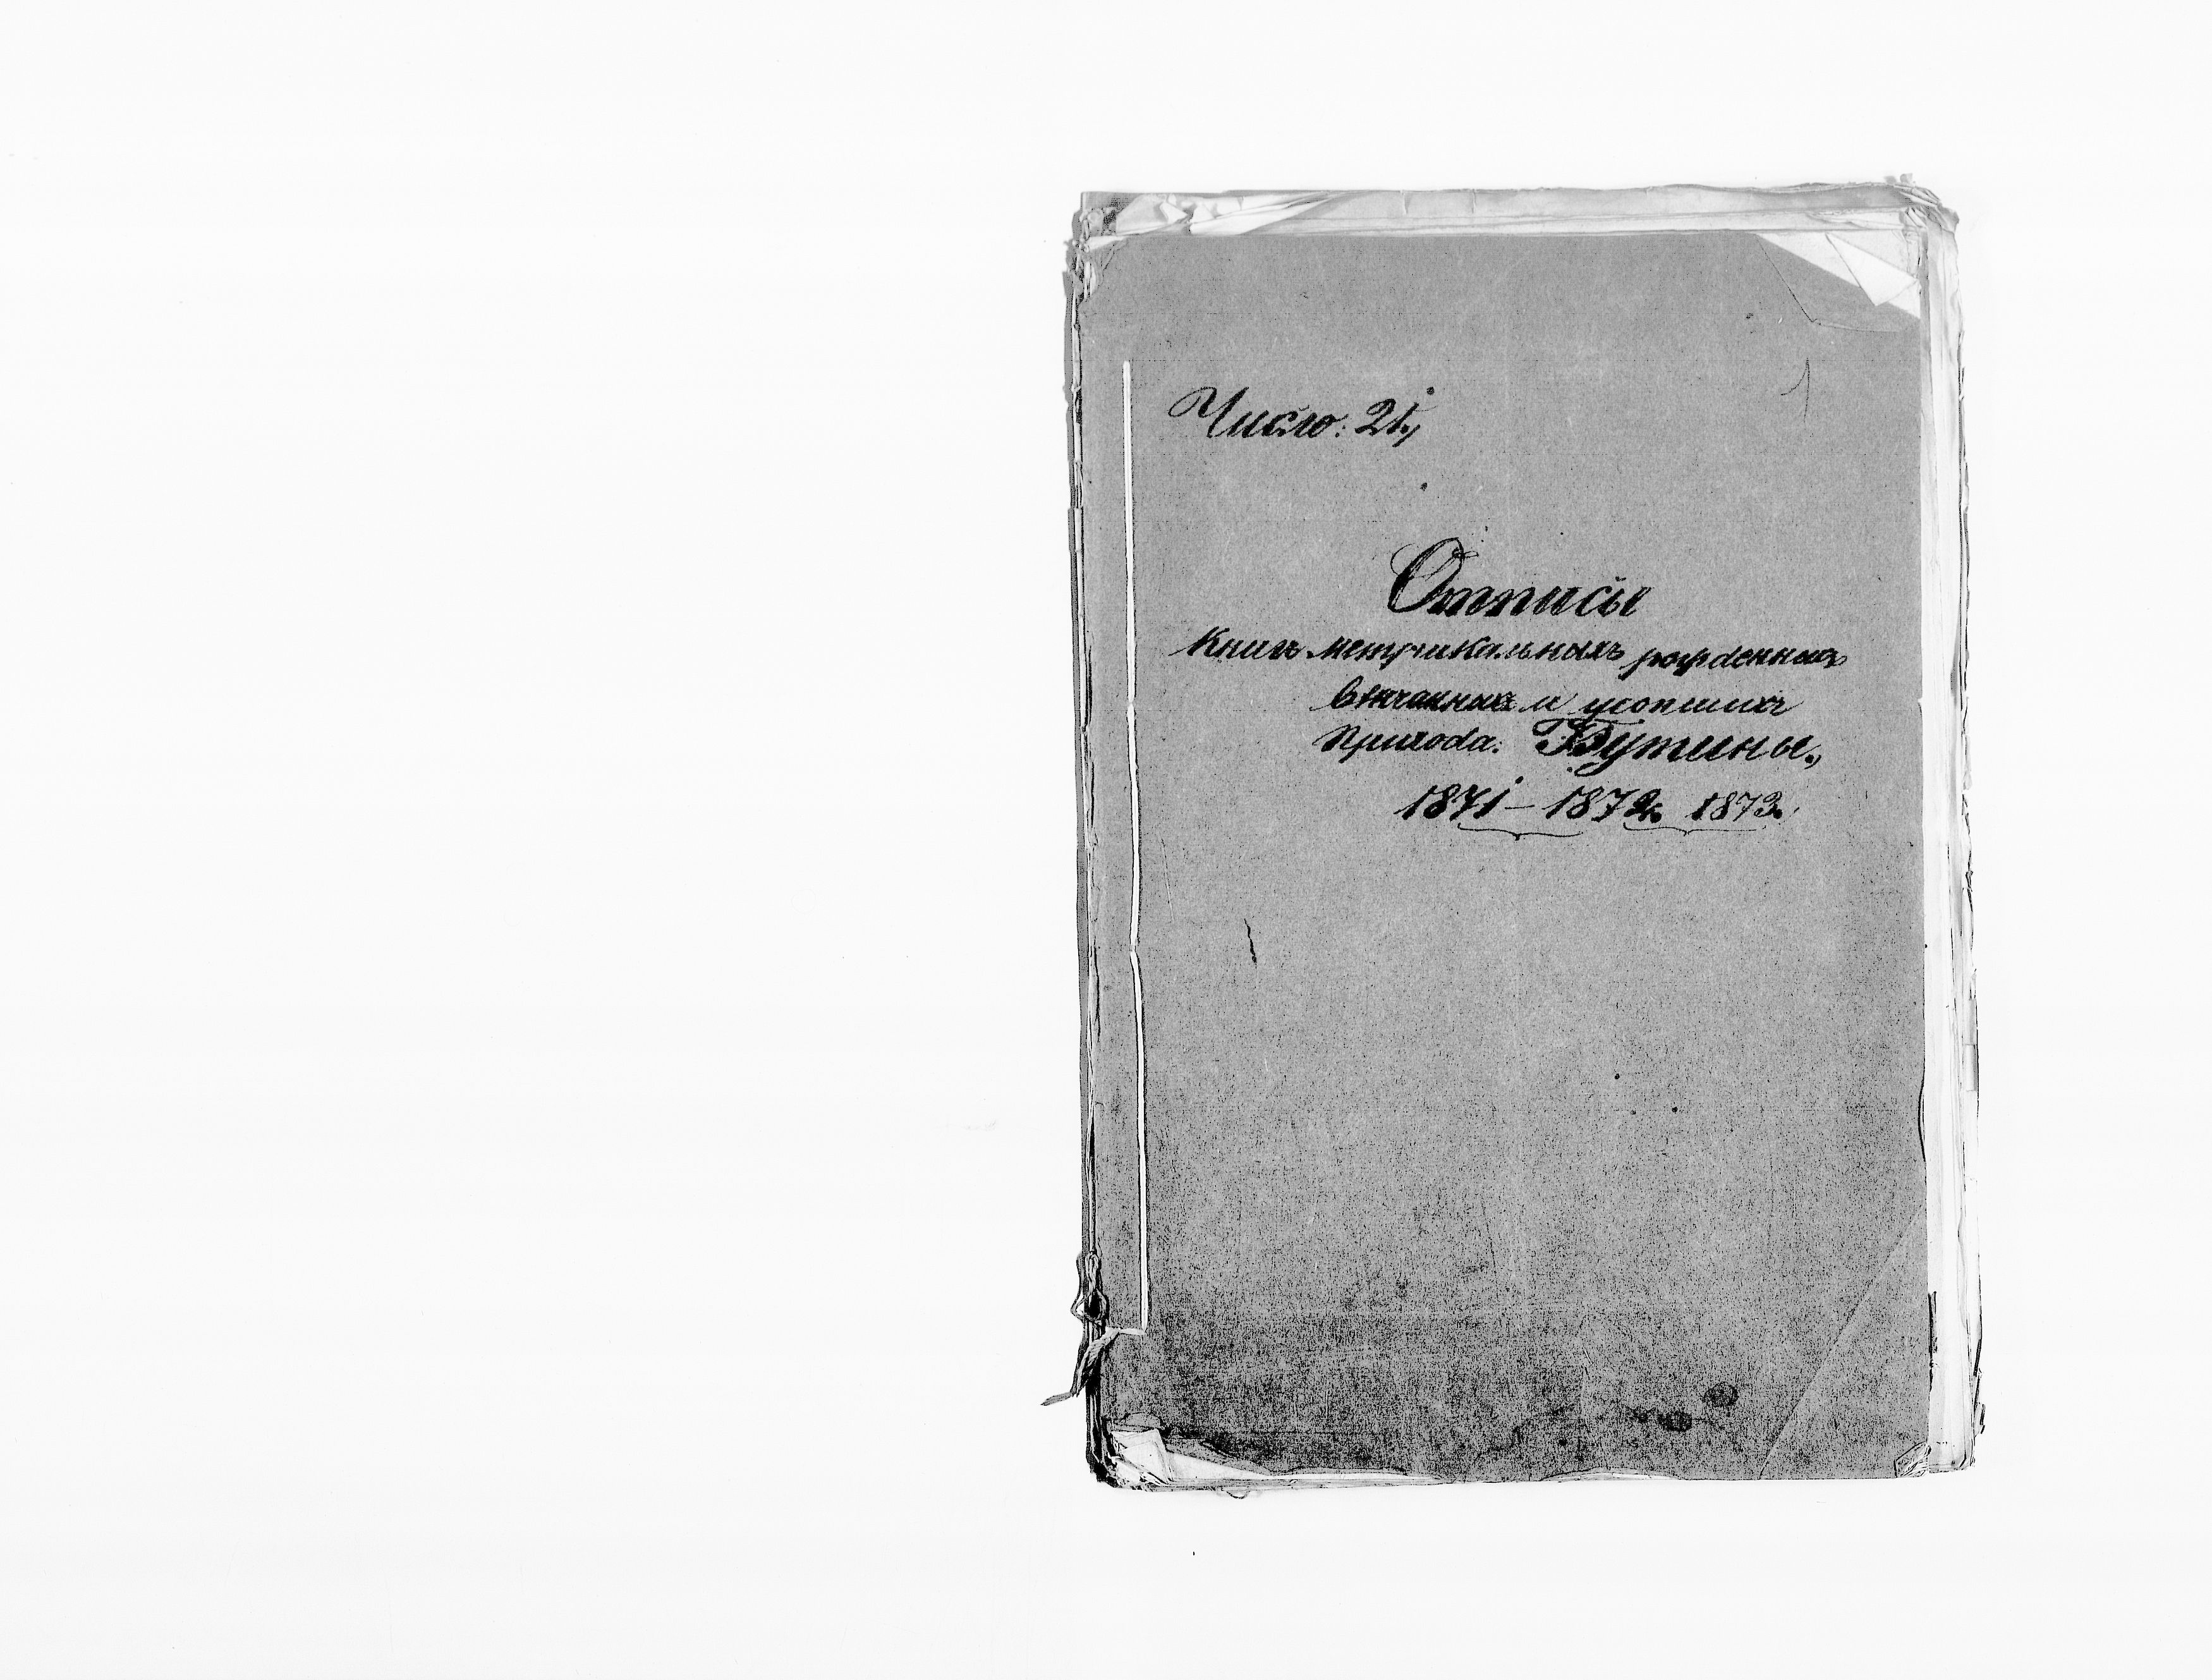 1
Число: 21,
Отписы
Книгъ метрикальныхъ рожденныхъ
вѣнчанныхъ и усопшихъ
Прихода: Бутины.,
1871 – 1872. 1873.